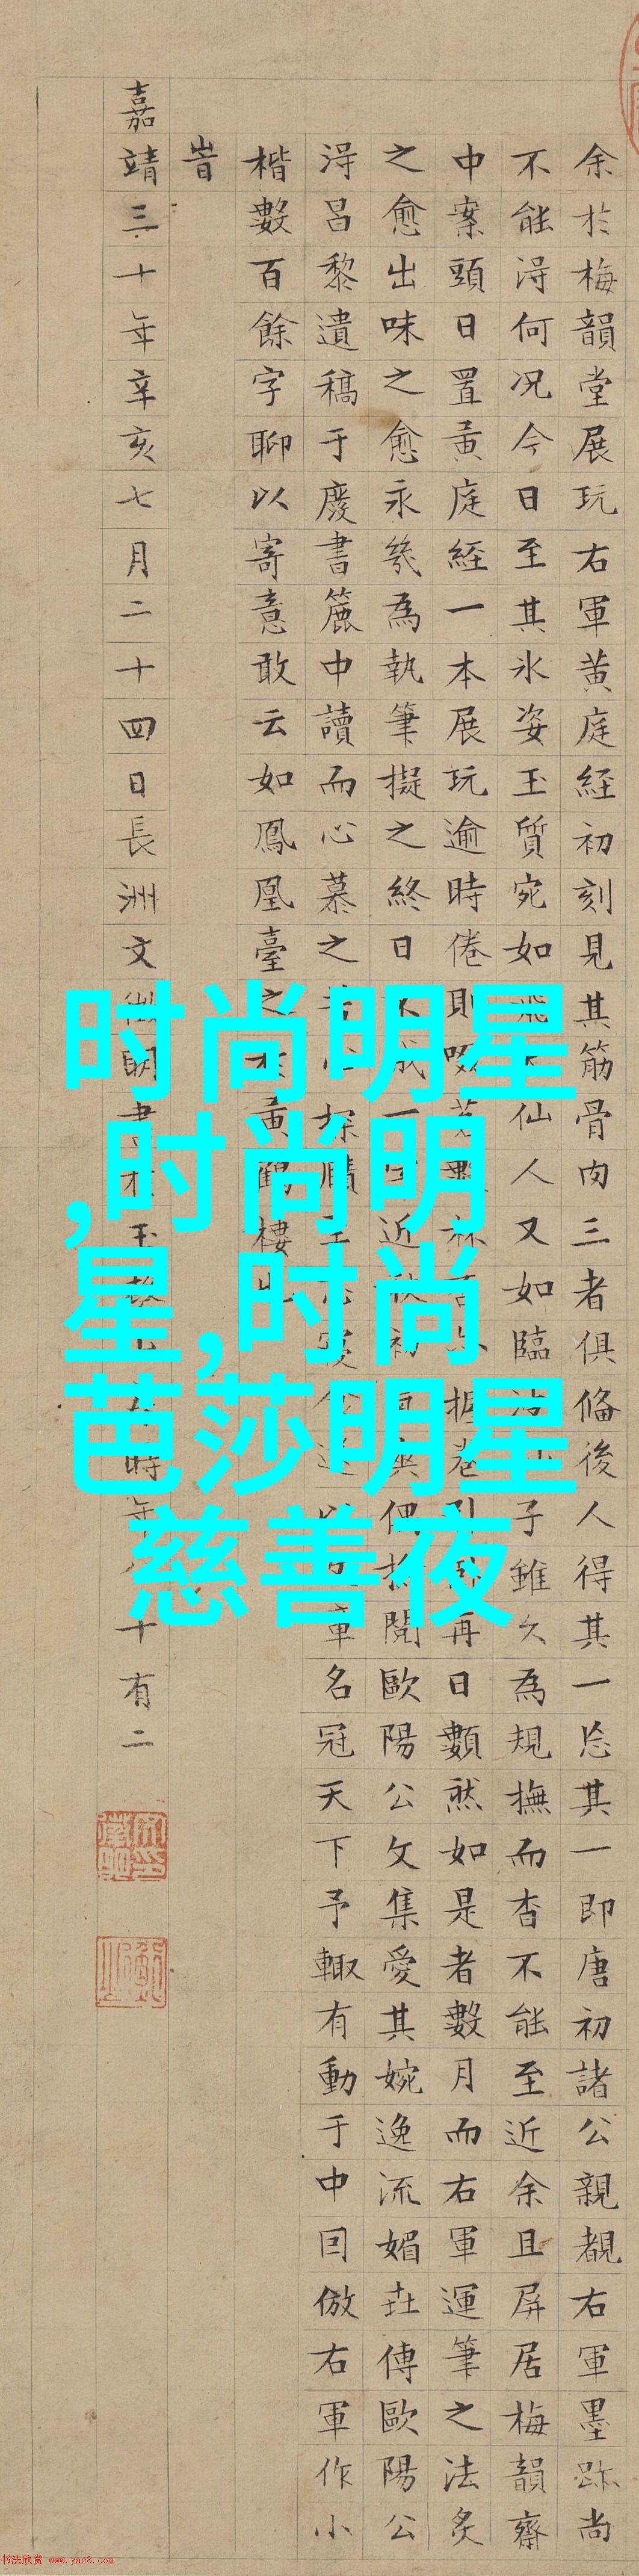 余於梅韻堂展玩右軍黃庭經初刻見其筋骨肉三者俱備後人得其一忘其一即唐初諸公親覩右軍墨跡尚
不能淂何况今日至其氷姿玉質宛如飛仙人又如臨子雖久為規撫而杳不能至近余且屏居梅韻齋
中案頭日置黃庭經一本展玩逾時倦則啜再日數然如是者數月而右軍運筆之法炙
之愈出味之愈永幾為執筆擬之終日閱歐陽公文集愛其婉逸流媚

淂呂黎遺稿于廢書簏中讀而心慕之軍名冠天下予輙有動于中囙倣右軍作小
楷數百餘字聊以寄意敢云如鳳凰臺之於黃鶴樓也
旹
嘉靖三十年辛亥七月二十四日長洲文徵明書於玉時年十有二
时尚明星
,时尚明
星,时尚
芭莎明星
慈善夜
书法欣赏 www.yac8.com